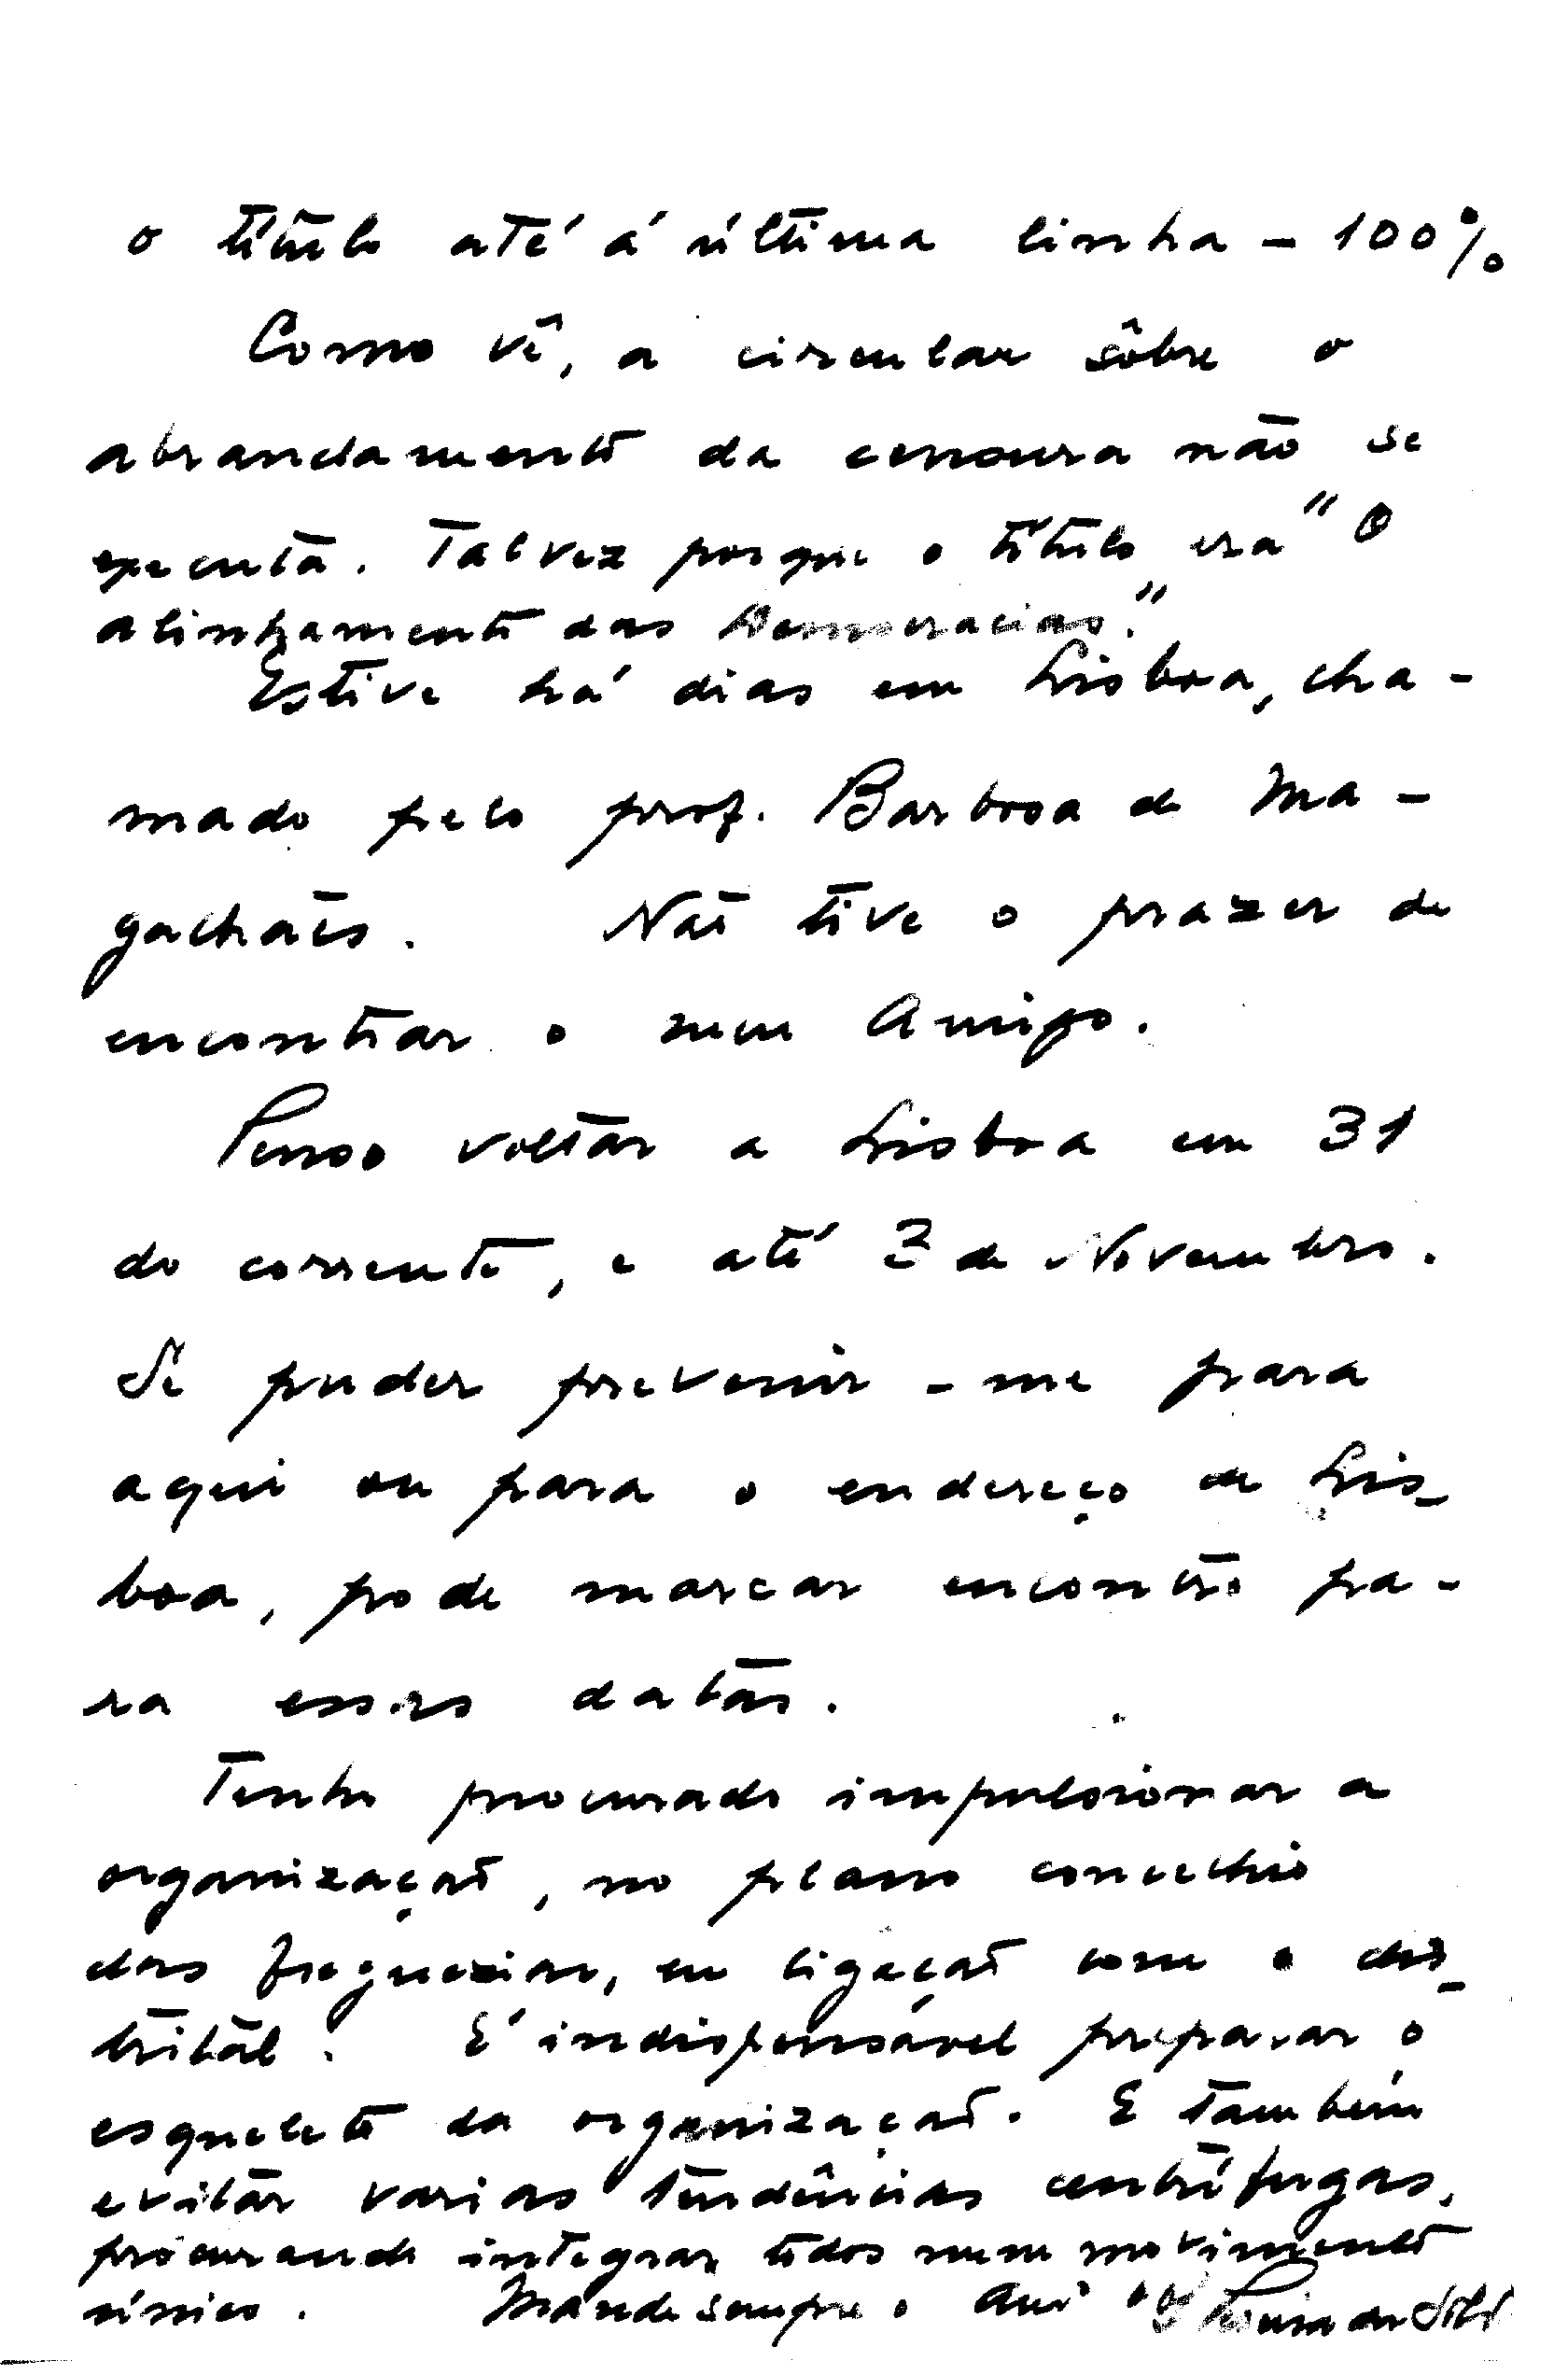 o título até á última linha - 100%
Como vê, a circular sôbre o
abrandamento da censura não se
executa. Talvez porque o título era "O
alinhamento das Democracias."
Estive há dias em Lisboa, cha-
mado pelo prof. Barbosa de Ma-
galhães. Não tive o prazer de
encontrar o meu Amigo.
Penso voltar a Lisboa em 31
do corrente, e até 3 de Novembro.
Se puder prevenir-me para
aqui ou para o endereço de Lis-
boa, pode marcar encontro pa-
ra essas datas.
Tenho procurado impulsionar a
organização, no plano concelhio
das freguezias, em ligação com o dis-
trital. E' indispensável preparar o
esquelete da organização. E também
evitar varias tendências centrífugas,
procurando integrar todos num movimento
único. Mande sempre o